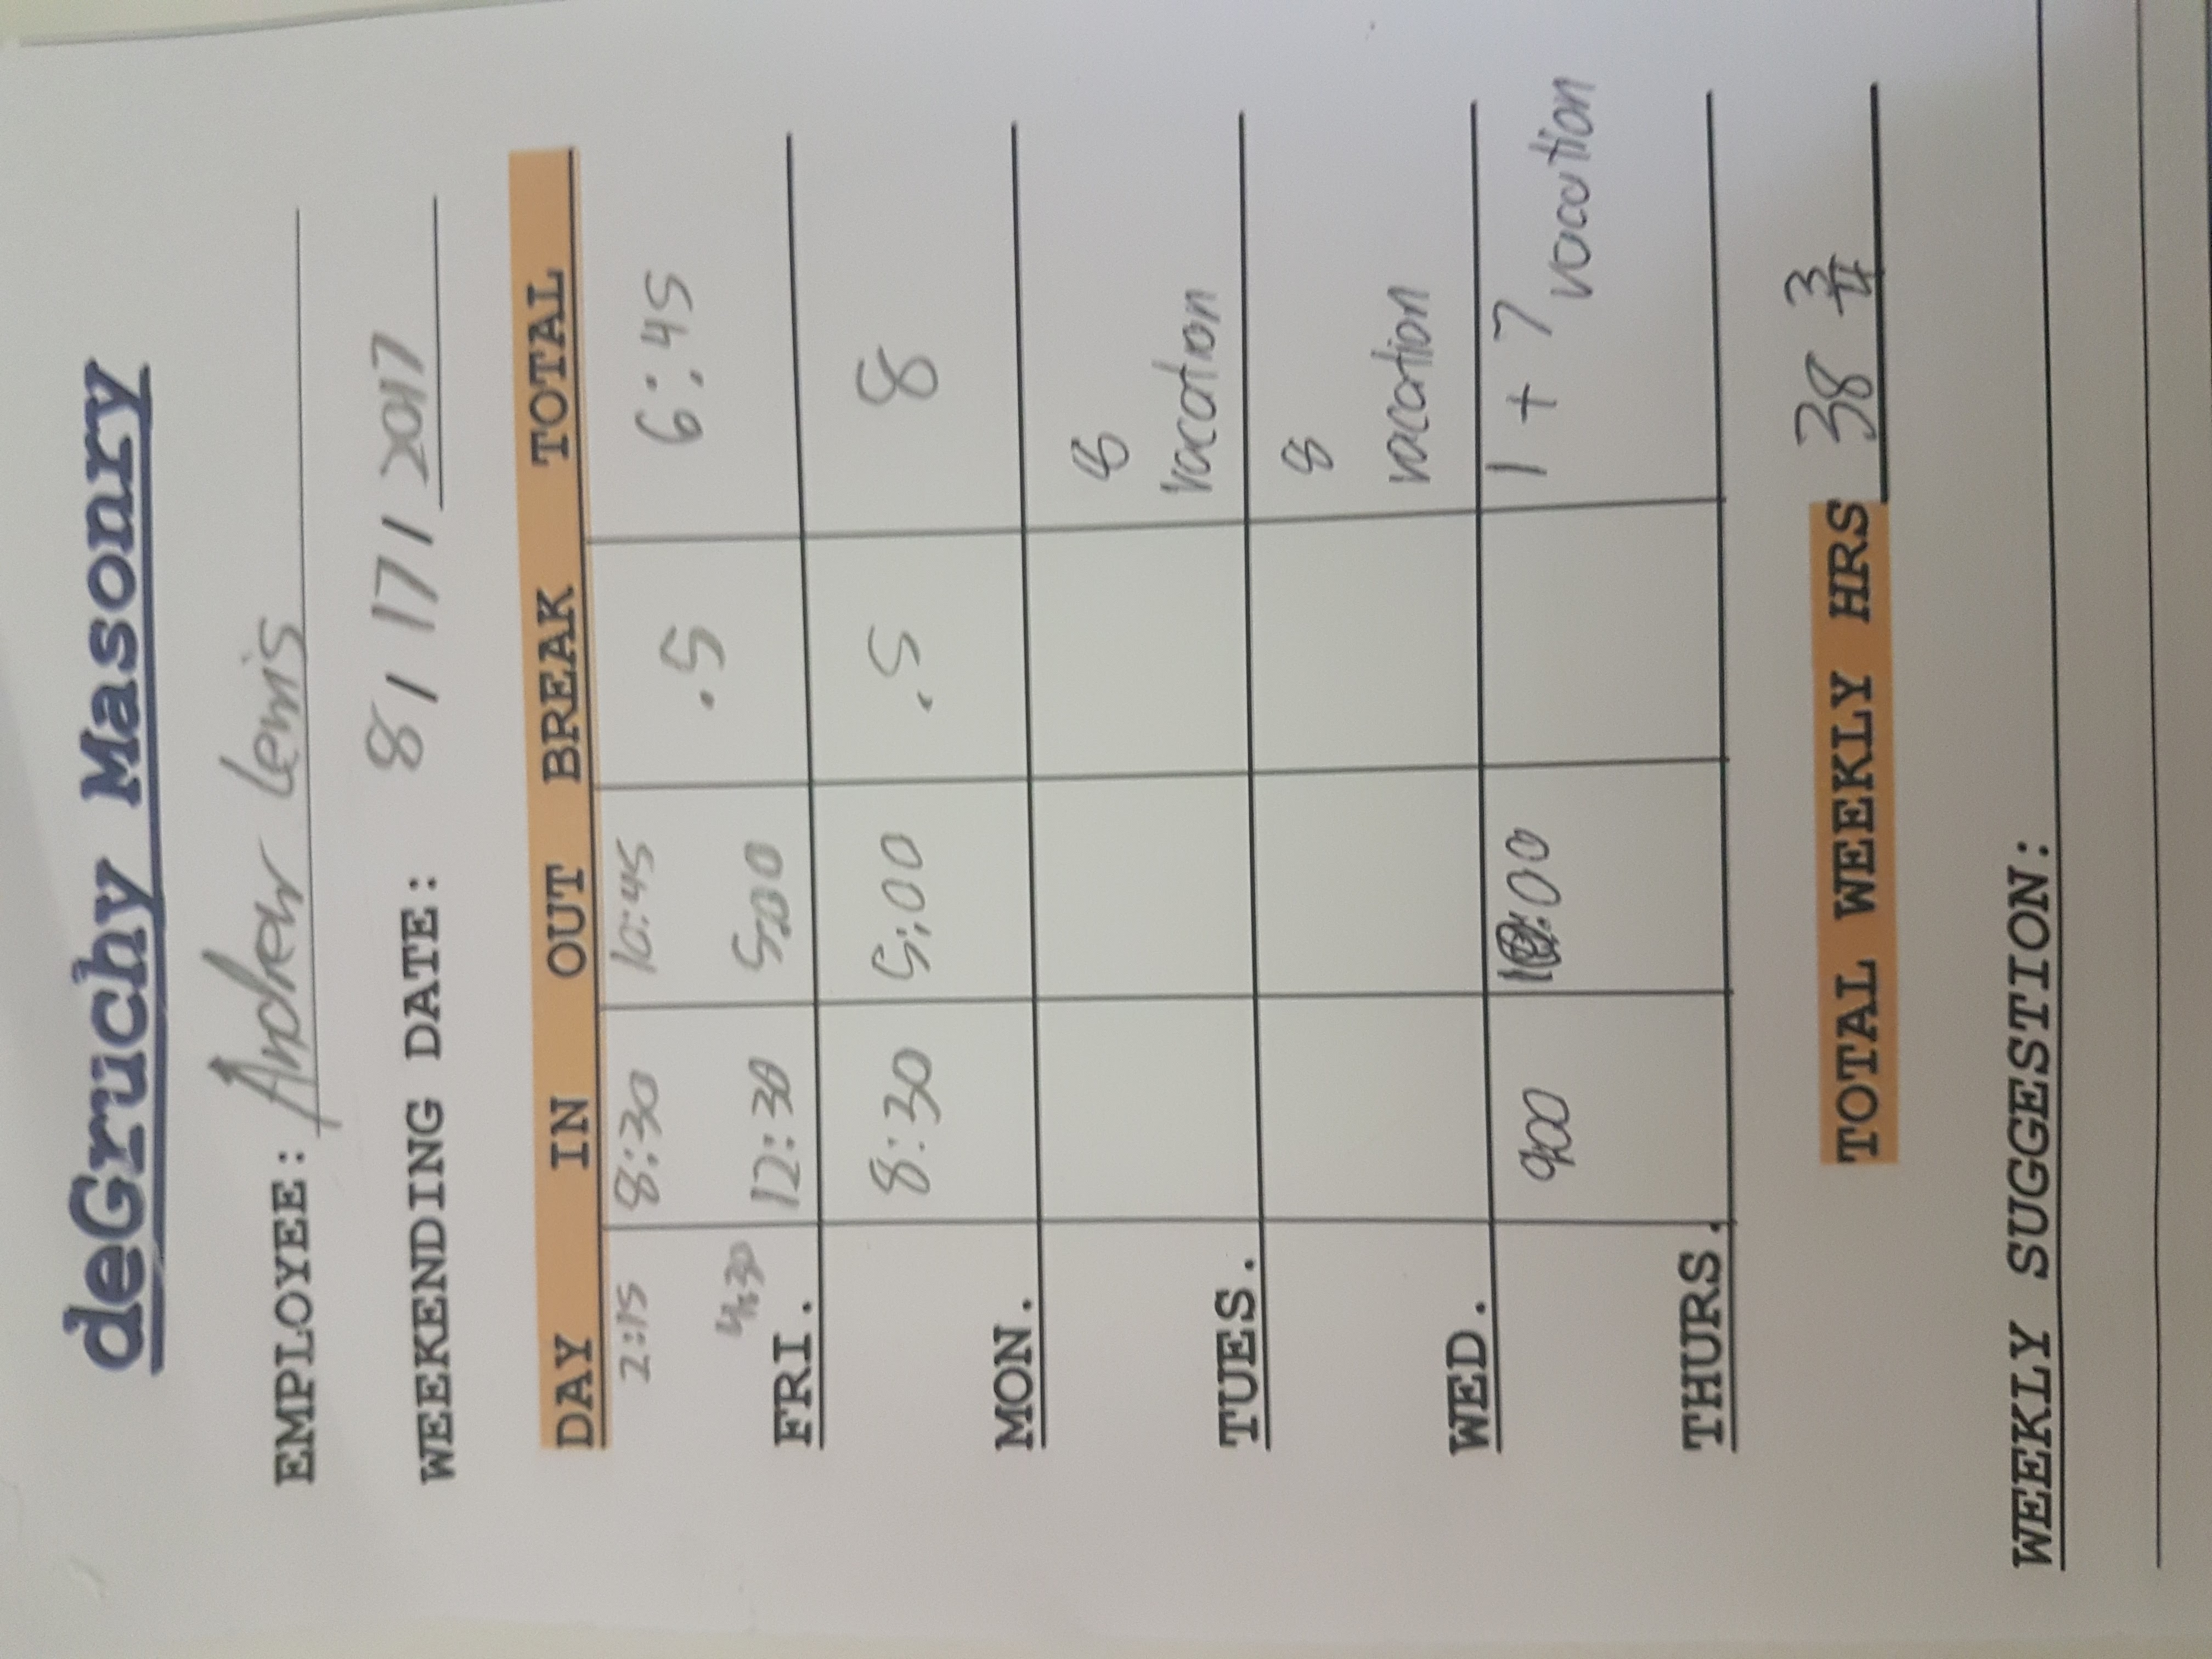 deGruchy Masonry
EMPLOYEE: Andrew Lewis
WEEKENDING DATE: 8/ 17/ 2017
DAY IN OUT BREAK TOTAL
2:15 8:30 10:45 .5 6:45
FRI. 4:30 12:30 5:00
8:30 5:00 .5 8
MON.
8
vacation
TUES.
8
vacation
WED.
9:00 10:00 1 + 7 vacation
THURS.
TOTAL WEEKLY HRS 38 3/4
WEEKLY SUGGESTION: